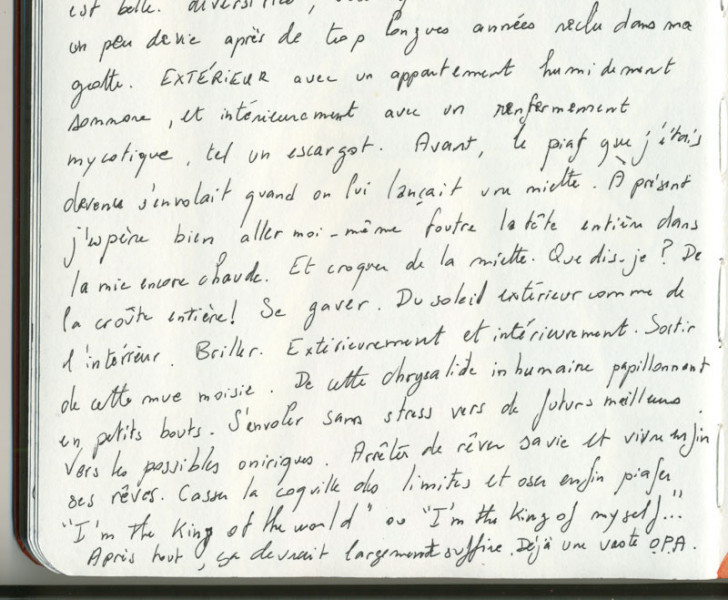 est belle.
un peu de vie après de trop longues années reclu dans ma
grotte. EXTÉRIEUR avec un appartement humidement
sommaire, et intérieurement avec un renfermement
mycotique, tel un escargot. Avant, le piaf que j'étais
devenu s'envolait quand on lui lançait une miette. À présent
j'espère bien aller moi-même foutre la tête entière dans
la mie encore chaude. Et croquer de la miette. Que dis-je ? De
la croûte entière! Se gaver. Du soleil extérieur comme de
l'intérieur. Briller. Extérieurement et intérieurement. Sortir
de cette mue moisie. De cette chrysalide inhumaine papillonnant
en petits bouts. S'envoler sans stress vers de futurs meilleurs.
Vers les possibles oniriques. Arrêter de rêver sa vie et vivre enfin
ses rêves. Casser la coquille des limites et oser enfin piafer
"I'm the King of the world" ou "I'm the King of myself..."
Après tout, ça devrait largement suffire. Déjà une vaste OPA.